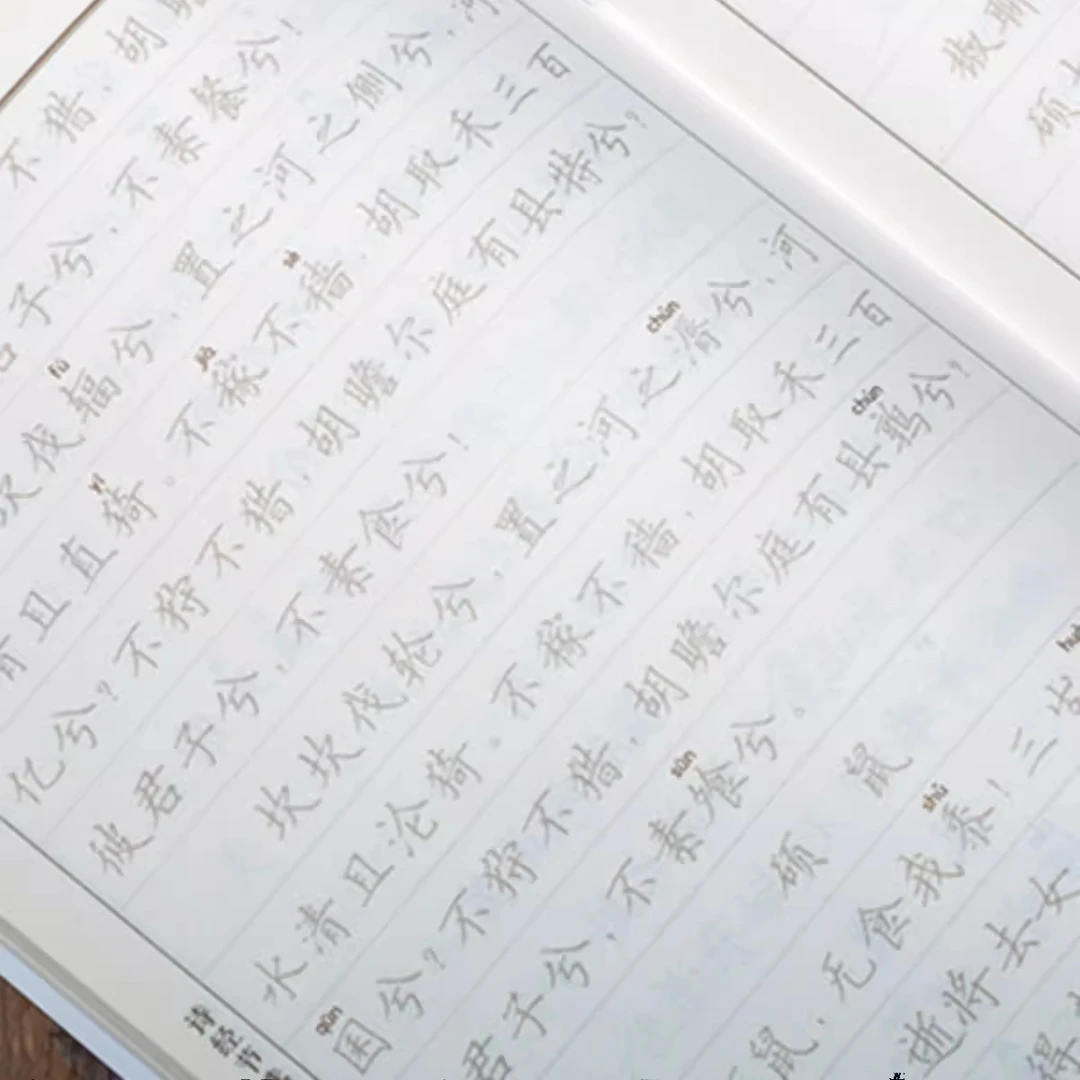 不猎,胡瞻
君子兮,不素餐兮!
fú
坎伐辐兮,置之河之侧兮,河
yī jià sè
清且直猗。不稼不穑,胡取禾三百
亿兮?不狩不猎,胡瞻尔庭有县特兮?
彼君子兮,不素食兮!
chún
坎坎伐轮兮,置之河之漘兮,河
水清且沦猗。不稼不穑,胡取禾三百
qūn chún
囷兮?不狩不猎,胡瞻尔庭有县鹑兮?
sūn
君子兮,不素飧兮。
硕鼠
shǔ
鼠,无食我黍!三岁
逝将去女
得
诗经
椒聊
硕